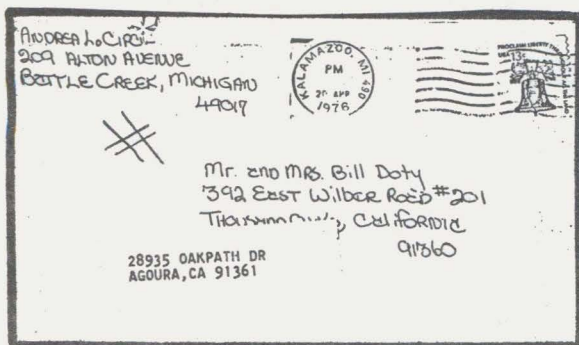 ANDREA LoCIRO
209 ALTON AVENUE
BATTLE CREEK, MICHIGAN
49017
KALAMAZOO, MI 490
PM
20 APR
1976
PROCLAIM LIBERTY
13c
Mr. and MRS. Bill Doty
392 EAST WILBER ROAD #201
THOUSAND, CALIFORNIA
91360
28935 OAKPATH DR
AGOURA, CA 91361